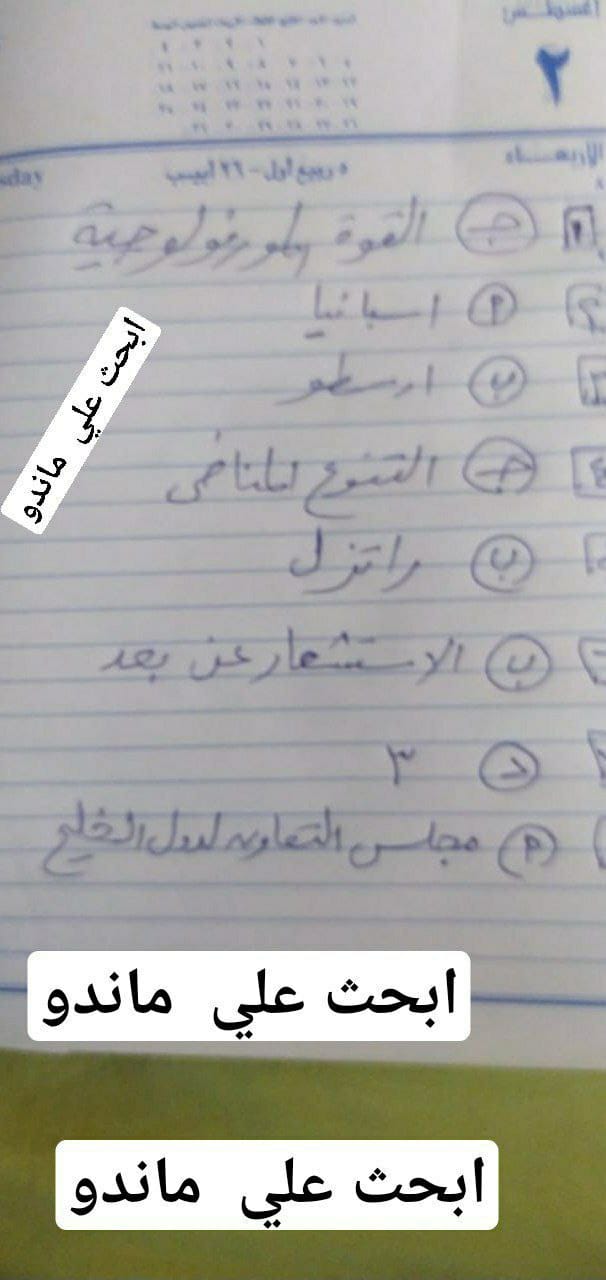 أغسطس
٢
الأربعاء
٥ ربيع أول - ٢٦ أبيب
sday
١ جـ القوة المورفولوجية
٢ م اسبانيا
٣ ب ارسطو
٤ جـ التنوع المناخى
ب راتزل
ب الاستشعار عن بعد
د ٣
م مجلس التعاون لدول الخليج
ابحث علي ماندو
ابحث علي ماندو
ابحث علي ماندو